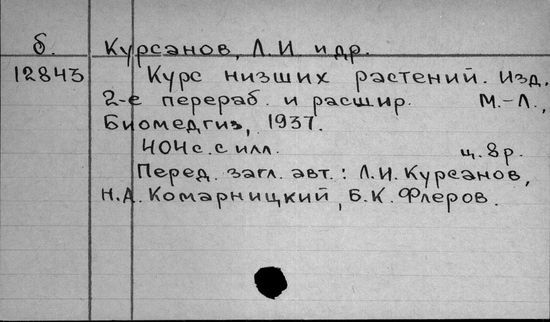 б. Курсанов, Л.И и др.
12843 Курс низших растений. Изд.
2-е перераб. и расшир. М.-Л.,
Биомедгиз, 1937.
404 с. с илл. ц. 8 р.
Перед. загл. авт.: Л.И. Курсанов,
Н.А. Комарницкий, Б.К. Флеров.